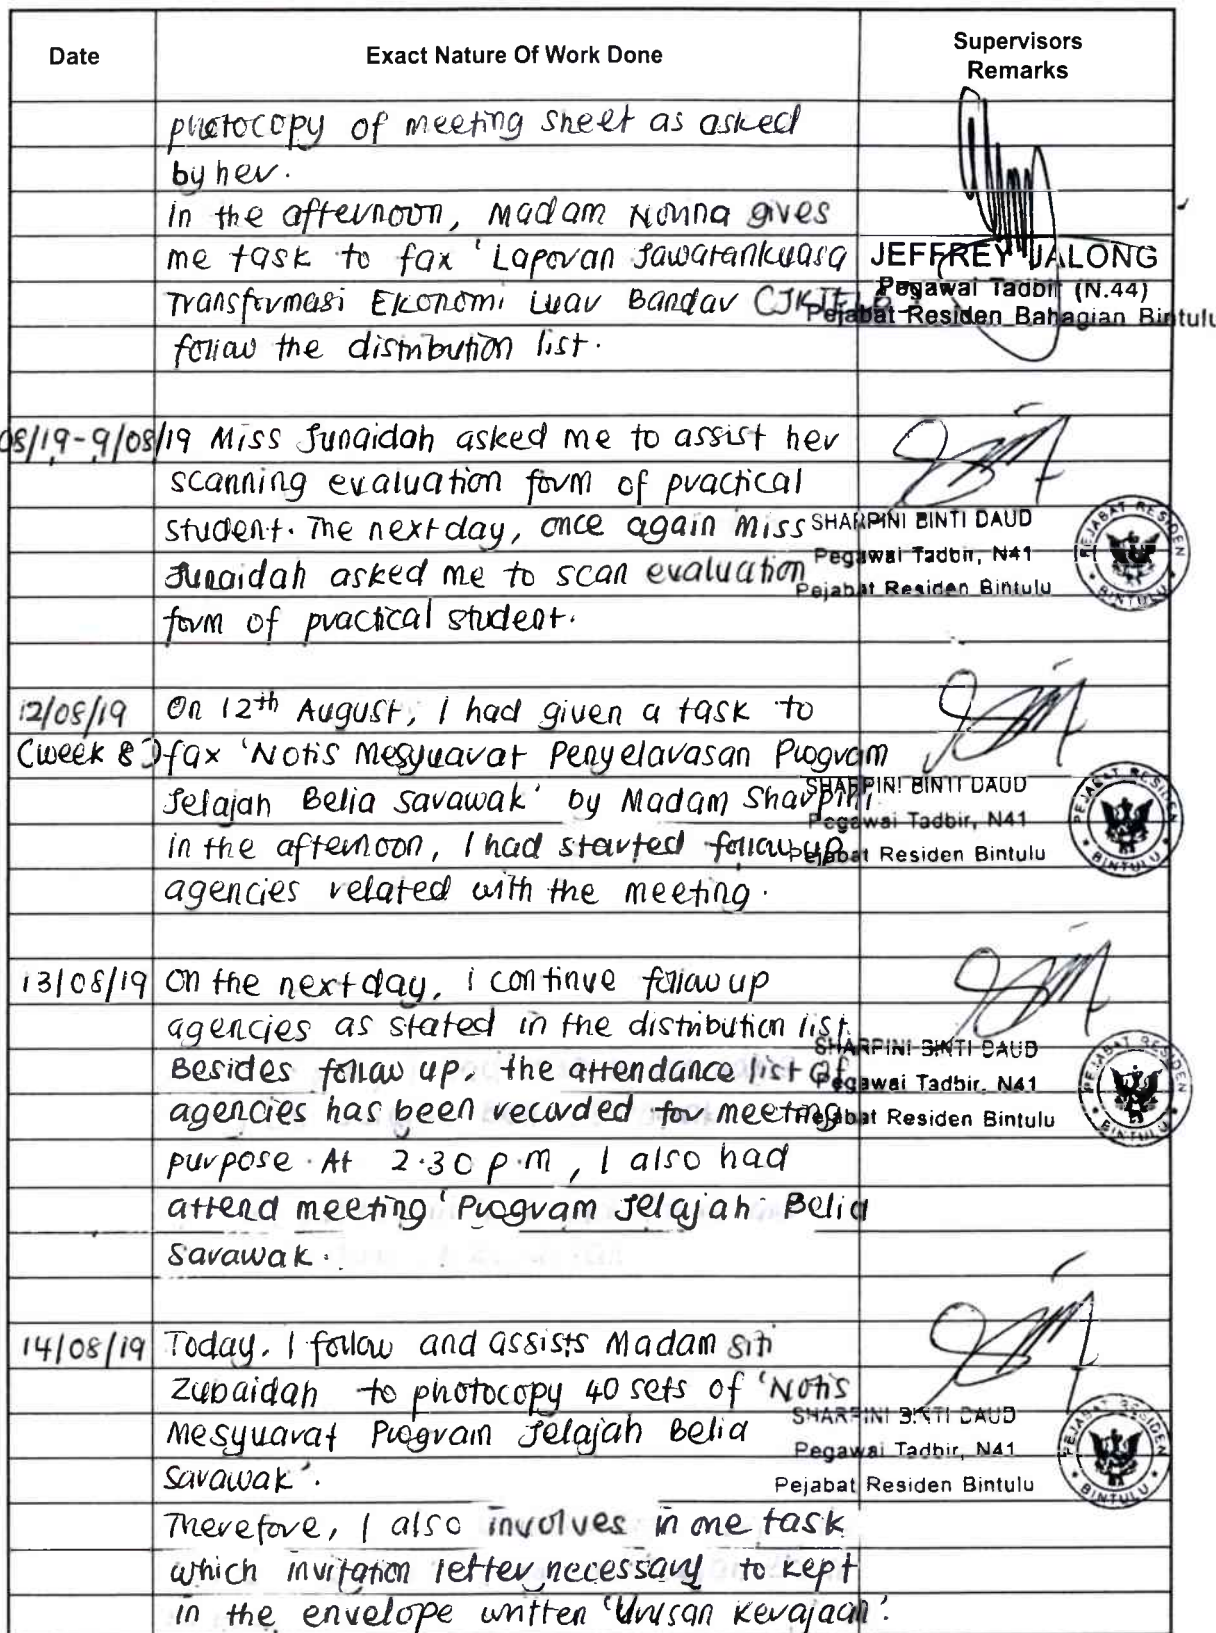 Date
Exact Nature Of Work Done
Supervisors
Remarks
photocopy of meeting sheet as asked
by her.
In the afternoon, Madam Nonna gives
me task to fax 'Laporan Jawatankuasa
Transformasi Ekonomi Luar Bandar
follow the distribution list.
JEFFREY JALONG
Pegawai Tadbir (N.44)
Pejabat Residen Bahagian Bintulu
08/19-9/08/19 Miss Junaidah asked me to assist her
scanning evaluation form of practical
student. The next day, once again Miss
Junaidah asked me to scan evaluation
form of practical student.
SHARPINI BINTI DAUD
Pegawai Tadbir, N41
Pejabat Residen Bintulu
PEJABAT RESIDEN
BINTULU
12/08/19 On 12th August, I had given a task to
(week 8) fax 'Notis Mesyuarat Penyelarasan Program
Jelajah Belia Sarawak' by Madam Sharpini.
in the afternoon, I had started follow up
agencies related with the meeting.
SHARPINI BINTI DAUD
Pegawai Tadbir, N41
Pejabat Residen Bintulu
PEJABAT RESIDEN
BINTULU
13/08/19 On the next day, i continue follow up
agencies as stated in the distribution list.
Besides follow up, the attendance list of
agencies has been recorded for meeting
purpose. At 2.30 p.m, I also had
attend meeting 'Program Jelajah Belia
Sarawak.
SHARPINI BINTI DAUD
Pegawai Tadbir, N41
Pejabat Residen Bintulu
PEJABAT RESIDEN
BINTULU
14/08/19 Today, I follow and assists Madam Siti
Zubaidah to photocopy 40 sets of 'Notis
Mesyuarat Program Jelajah Belia
Sarawak'.
Therefore, I also involves in one task
which invitation letter necessary to kept
in the envelope written 'Urusan Kerajaan'.
SHARPINI BINTI DAUD
Pegawai Tadbir, N41
Pejabat Residen Bintulu
PEJABAT RESIDEN
BINTULU